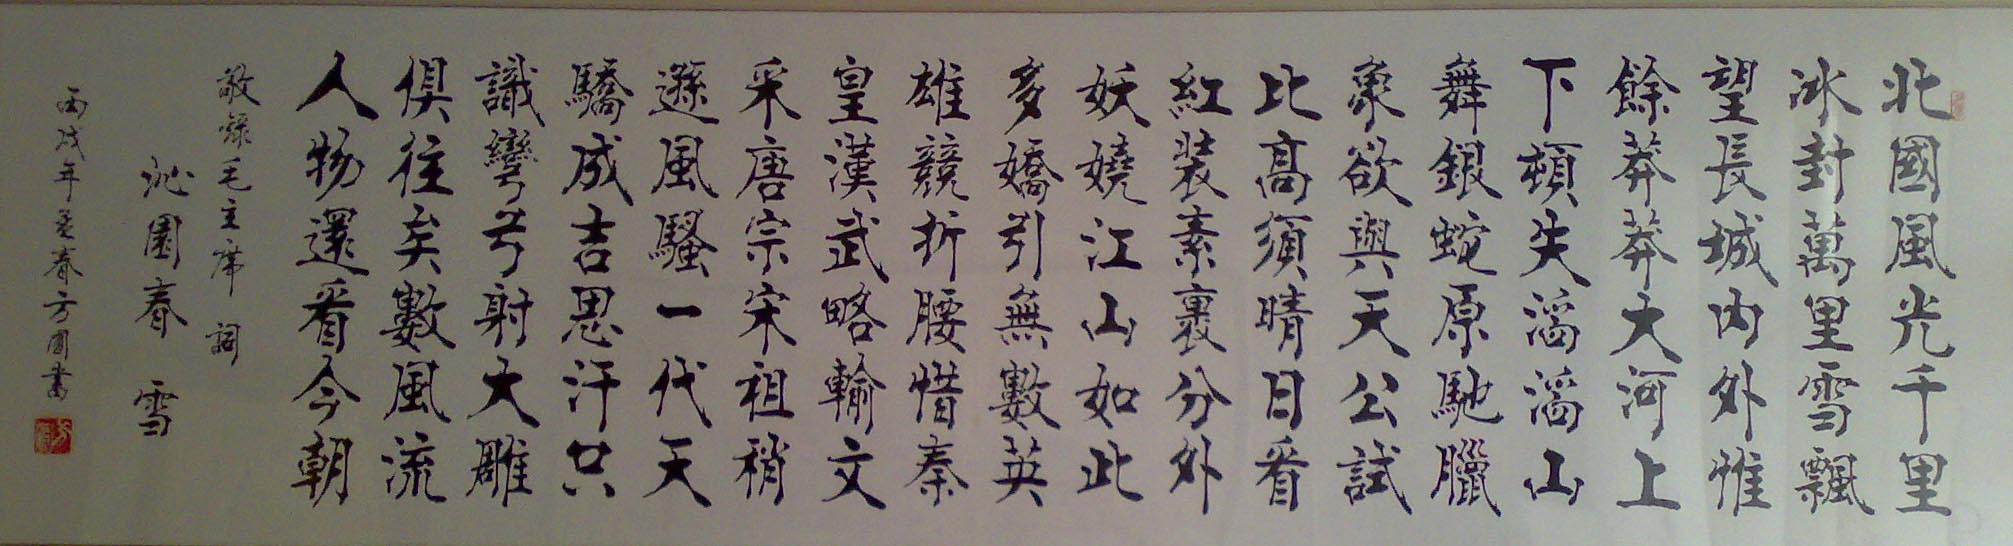 北國風光千里
冰封萬里雪飄
望長城内外惟
餘莽莽大河上
下頓失滔滔山
舞銀蛇原馳臘
象欲與天公試
比高須晴日看
紅裝素裹分外
妖嬈江山如此
多嬌引無數英
雄競折腰惜秦
皇漢武略輸文
采唐宗宋祖稍
遜風騷一代天
驕成吉思汗只
識彎弓射大雕
俱往矣數風流
人物還看今朝
敬錄毛主席 詞
沁園春 雪
丙戌年孟春方圓書